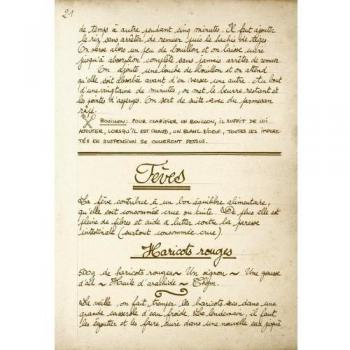 21
de temps à autre pendant cinq minutes. Il faut ajouter
le riz sans arrêter de remuer puis le hachis de tiges.
On verse alors un peu de bouillon et on laisse cuire
jusqu'à absorption complète sans jamais arrêter de remuer.
On ajoute une louche de bouillon et on attend
qu'elle soit absorbée avant d'en verser une autre. Au bout
d'une vingtaine de minutes, on met le beurre restant et
les pointes d'asperges. On sert de suite avec du parmesan
râpé.
Bouillon: pour clarifier un bouillon, il suffit de lui
ajouter, lorsqu'il est chaud, un blanc d'oeuf, toutes les impure-
tés en suspension se colleront dessus.
Fèves
La fève contribue à un bon équilibre alimentaire,
qu'elle soit consommée crue ou cuite. De plus elle est
pleine de fibres et aide à lutter contre la paresse
intestinale (surtout consommée crue).
Haricots rouges
500g de haricots rouges ~ Un oignon ~ Une gousse
d'ail ~ Huile d'arachide ~ Thym.
La veille on fait tremper les haricots secs dans une
grande casserole d'eau froide. Le lendemain, il faut
les égoutter et les faire cuire dans une nouvelle eau